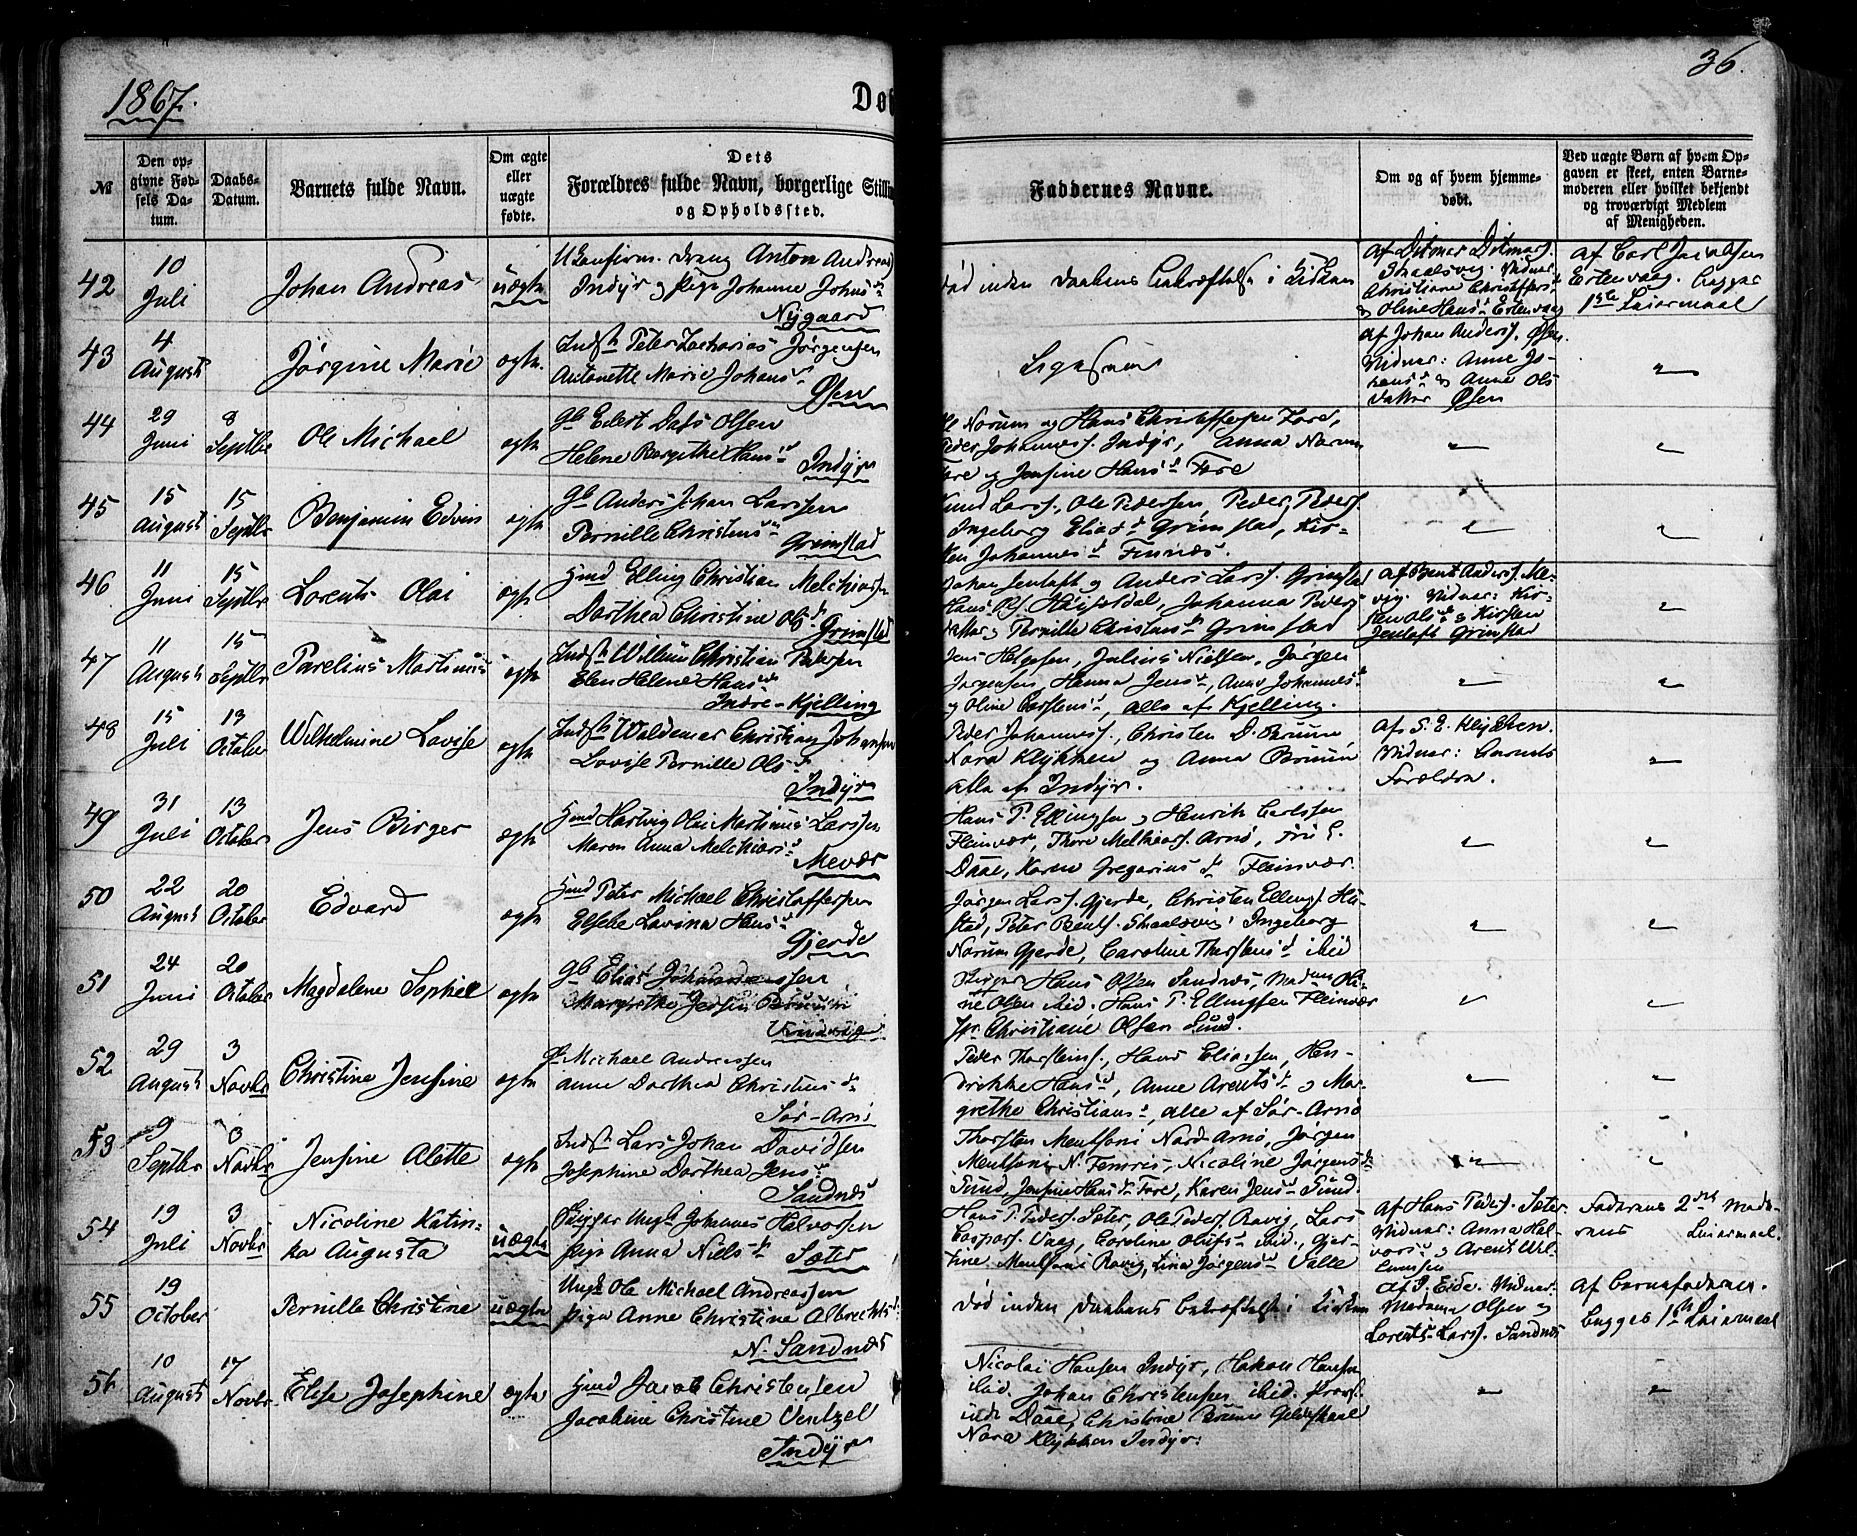 1867.
36.
Dø
№
Den op-
givne Fød-
sels Da-
tum.
Daabs-
Datum.
Barnets fulde Navn.
Om ægte
eller
uægte
fødte.
Dets
Forældres fulde Navn, borgerlige Stilli
og Opholdssted.
Faddernes Navne.
Om og af hvem hjemme-
døbt.
Ved uægte Børn af hvem Op-
gaven er skeet, enten Barne-
moderen eller hvilket bekjendt
og troværdigt Medlem
af Menigheden.
42
10
Juli
Johan Andreas
uægte
Ukonfirm. Dreng Anton Andreas
Indyr og Pige Johanne Johns d.
Nygaard
død inden Daabens Bekræftelse i Kirken
af Ditmar Ditmars.
Christiane Christoffers
og Oline Hans d. Ertenvaag
af Carl Jacobsen
Ertenvaag. begges
1ste Leiermaal
43
4
August
Jørgine Marie
ægte
Indst. Peter Zacharias Jørgensen
Antonette Marie Johans d.
Øsen
Ligesaa
af Johan Anders. Øsen
Vidner: Anne Jo-
hans d. og Anne Ols
datter Øsen
"
44
29
Juni
8
Septbr
Ole Michael
ægte
Gb Edert Dass Olsen
Helene Bergithe Hans d.
Indyr
Ole Norum og Hans Christoffersen Fore,
Peder Johannes. Indyr, Anna Norum
Fore og Jensine Hans d. Fore
"
"
45
15
August
15
Septbr
Benjamin Edvin
ægte
Gb Anders Johan Larssen
Pernille Christens d.
Grimstad
Knud Lars., Ole Pedersen, Peder Peders.
Ingeborg Elias d. Grimstad, Kir-
sten Johannes d. Finnæs.
"
"
46
11
Juni
15
Septbr
Lorents Olai
ægte
Hmd Elling Christian Melchiorsen
Dorthea Christine Ols d.
Grimstad
Johan Jentoft og Anders Lars. Grimstad
Hans Ols. Johanna Peders
datter, Pernille Christens d. Grimstad
af Bent Anders. Me-
vig. Vidner: Kir-
sten Ols d. og Kirsten
Jentoft Grimstad
"
47
11
August
15
Septbr
Parelius Martinus
ægte
Indst. Willum Christian Petersen
Elen Helene Hans d.
Indre-Kjelling
Jens Helgesen, Julius Nielsen, Jørgen
Jørgensen, Hanna Jens d., Anne Johannes d.
og Oline Carstens d., alle af Kjelling.
"
"
48
15
Juli
13
October
Wilhelmine Lovise
ægte
Indst. Waldemar Christian Johansen
Lovise Pernille Ols d.
Indyr
Peder Johannes., Christen D. Bruun,
Nora Klykken og Anna Bruun
alle af Indyr.
af S. E. Klykken.
Vidner: Barnets
Forældre.
"
49
31
Juli
13
October
Jens Birger
ægte
Hmd Hartvig Olai Martinus Larssen
Maren Anna Melchiors d.
Mevær
Hans P. Ellingsen og Henrik Carlssen
Fleinvær, Thore Melkiors. Arnø, Fru E.
Daae, Karen Gregorius d. Fleinvær.
"
"
50
22
August
20
October
Edvard
ægte
Hmd Peter Michael Christoffersen
Elsebe Lavina Hans d.
Gjerde
Jørgen Lars. Gjerde, Christen Ellings. Hu-
stad, Peter Bents. Ingeborg
Norum Gjerde, Caroline Thorstens d. ibid
"
"
51
24
Juni
20
October
Magdalene Sophie
ægte
Gb Elias
Margrethe
Hans Olsen Sandnæs, Madame Oli-
ne Olsen ibid. Hans P. Ellingsen Fleinvær
Jfr Christiane Olsen Sund.
"
"
52
29
August
3
Novbr
Christine Jensine
ægte
Michael Andreassen
Anne Dorthea Christens d.
Sør-Arnø
Peder Thorsteins., Hans Eliassen, Hen-
drikke Hans d., Anne Arents d. og Mar-
grethe Christians d., alle af Sør-Arnø
"
"
53
9
Septbr
3
Novbr
Jensine Alette
ægte
Indst. Lars Johan Davidsen
Josephine Dorthea Jens d.
Sandnæs
Thorsten Mentsoni Nord-Arnø, Jørgen
Mentsoni N. Femris, Nicoline Jørgens d.
Sund, Jensine Hans d. Fore, Karen Jens d. Sund.
"
"
54
19
Juli
3
Novbr
Nicoline Katin-
ka Augusta
uægte
Ungk. Johannes Halvorsen
Pige Anna Niels d.
Sæter
Hans P. Peders. Sæter, Ole Peders. Ravig, Lars
Caspars. Vaag, Caroline Olufs d. ibid., Gjer-
tine Mentsoni Ravig, Lina Jørgens d. Valle
af Hans Peders. Sæter
Vidner: Anna Hal-
vors d. og Arent Wil-
lumsen
Faderens 2det Mode-
rens Leiermaal.
55
19
October
Pernille Christine
uægte
Ungk. Ole Michael Andreassen
Pige Anne Christine Albrechts d.
N. Sandnæs
Død inden Daabens Bekræftelse i Kirken
af P. Eide. Vidner:
Madame Olsen og
Lorents Lars. Sandnæs
af Barnefaderen.
begges 1ste Leiermaal
56
10
August
17
Novbr
Elise Josephine
ægte
Hmd Jacob Christensen
Jacobine Christine Ventzel
Indyr
Nicolai Hansen Indyr, Hakon Hansen
ibid. Johan Christensen ibid. Provst-
inde Daae, Christine Bruun Gildeskaal
Nora Klykken Indyr.
"
"